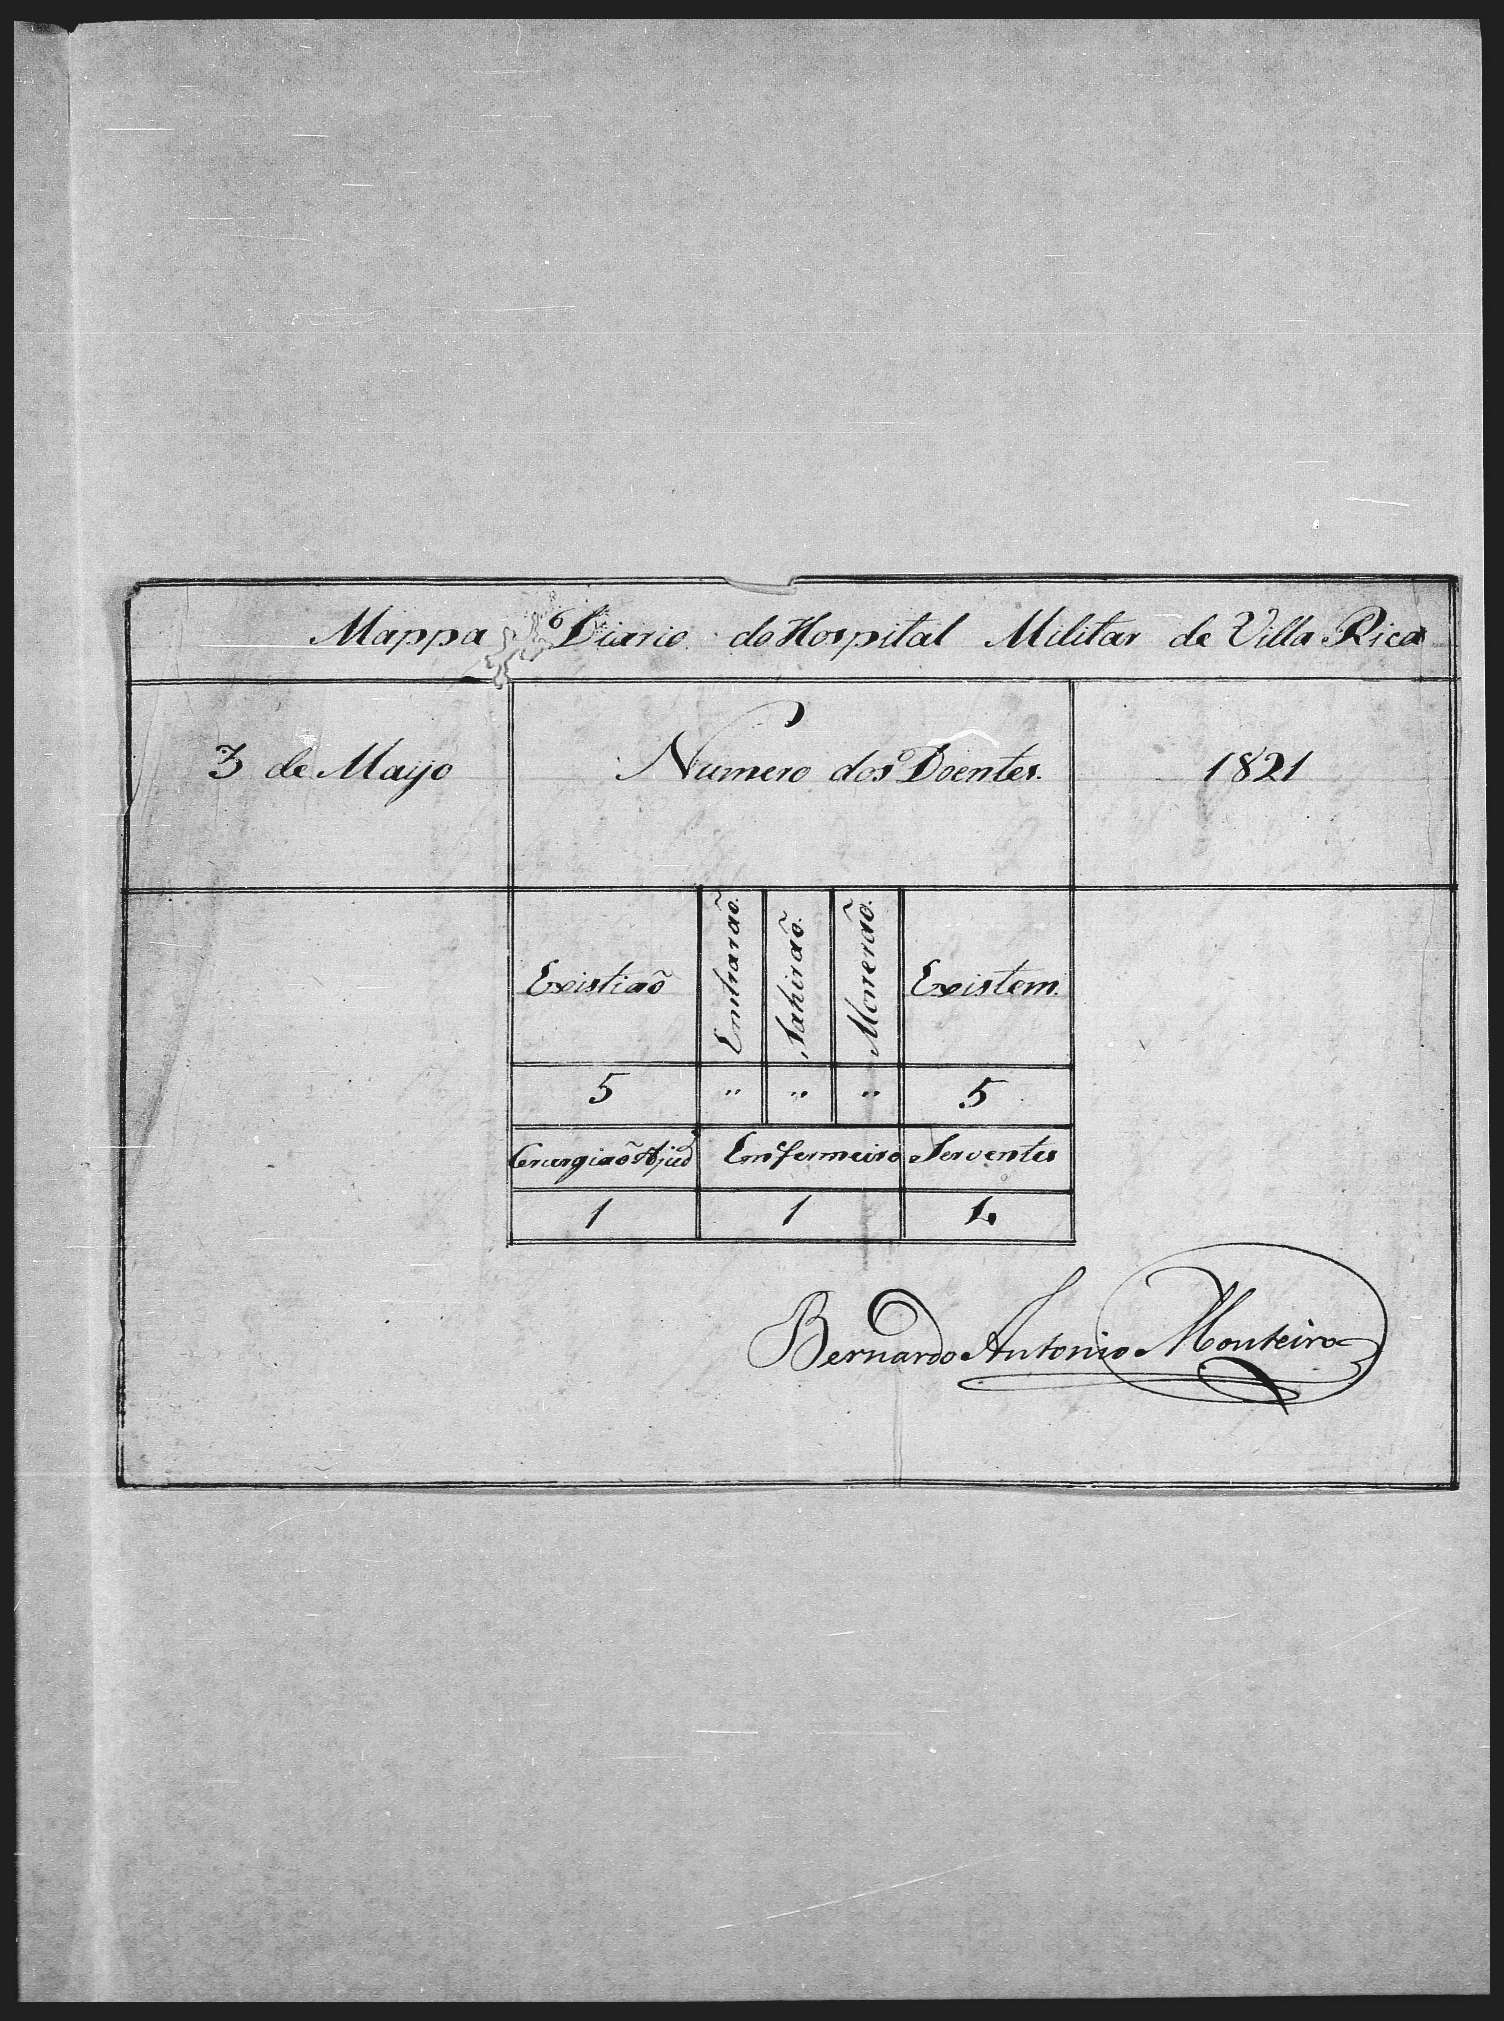 Mappa Diario do Hospital Militar de Villa Rica
3 de Mayo
Numero dos Doentes.
1821
Existiaõ
Entraraõ.
Sahiraõ.
Morreraõ.
Existem.
5 " " " 5
Cirurgiaõ Ajud.e Emfermeiro Serventes
1 1
Bernardo Antonio Monteiro